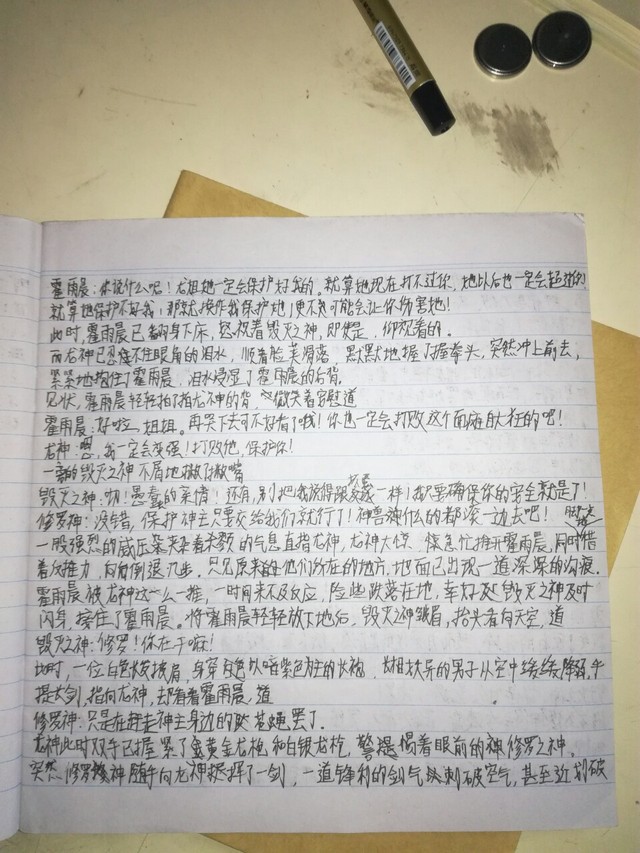 霍雨晨：你说什么呢！龙姐她一定会保护好我的。就算她现在打不过你，她以后也一定会超过你！
就算她保护不好我，那就换作我保护她！更不可能会让你伤害她！
此时，霍雨晨已翻身下床，怒视着毁灭之神，即使是，仰视着的。
而龙神已忍不住眼角的泪水，顺着脸美滑落，默默地握了握拳头，突然冲上前去，
紧紧地抱住了霍雨晨，泪水浸湿了霍雨晨的后背。
见状，霍雨晨轻轻拍了拍龙神的背，微笑着安慰道
霍雨晨：好啦，姐姐。再哭下去可不好看了哦！你也一定会打败这个面瘫自大狂的吧！
龙神：嗯，我一定会变强！打败他，保护你！
一旁的毁灭之神不屑地撇了撇嘴
毁灭之神：切！愚蠢的亲情！还有，别把我说得跟坏蛋一样！我只要确保你的安全就是了！
修罗神：没错，保护神主只要交给我们就行了！神兽神什么的都滚一边去吧！
一股强烈的威压夹杂着肃颓的气息直指龙神，龙神大惊，急忙推开霍雨晨，同时借
着反推力，向后倒退几步。只见原来的他们所在的地方，地面已出现一道深深的沟痕。
霍雨晨被龙神这么一推，一时间来不及反应，险些跌落在地，幸好毁灭之神及时
闪身，接住了霍雨晨。将霍雨晨轻轻放下地后，毁灭之神皱眉，抬头看向天空，道
毁灭之神：修罗！你在干嘛！
此时，一位白色长发披肩，身穿白色以暗紫色为主的长袍，长相妖异的男子从空中缓缓降落，手
提大剑，指向龙神，却看着霍雨晨，道
修罗神：只是在赶走神主身边的苍蝇罢了.
龙神此时双手已握紧了黄金龙枪和白银龙枪，警惕着眼前的修罗之神.
突然修罗神随手向龙神挥了一剑，一道锋利的剑气刺破空气，甚至近划破